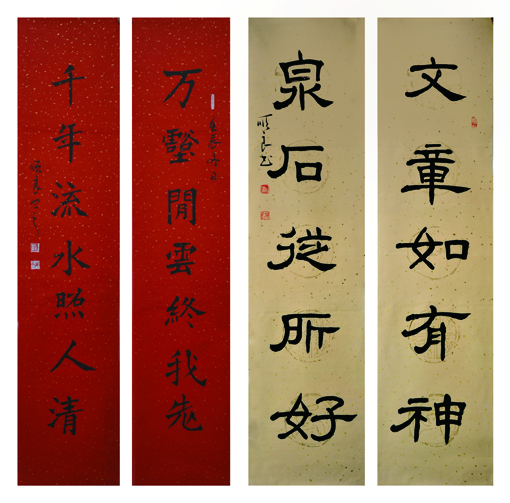 文章如有神
泉石從所好
順良书
万壑閒雲終我老
千年流水照人清